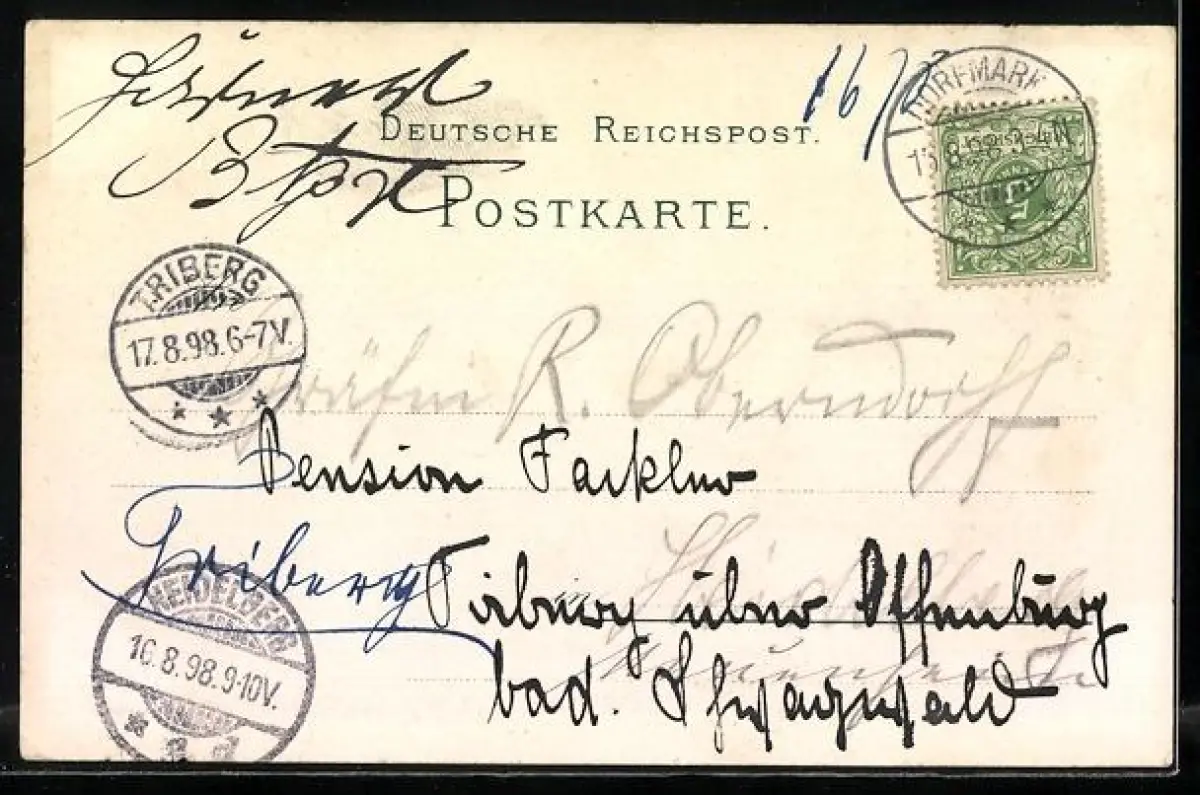 16/8
DEUTSCHE REICHSPOST.
POSTKARTE.
DORFMARK
8.98
TRIBERG
17.8.98.6-7V.
Gräfin R. Oberndorff
Pension Fackler
Triberg
Tirberg über Offenburg
bad. Schwarzwald
HEIDELBERG
16.8.98.9-10V.